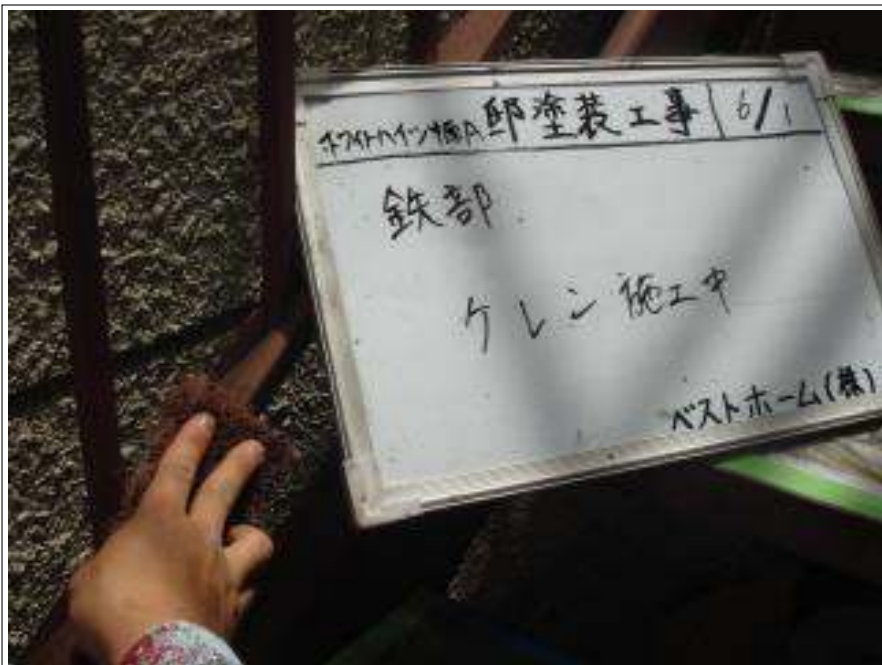 ホワイトハイツ 邸塗装工事 6/1
鉄部
ケレン施工中
ベストホーム(株)